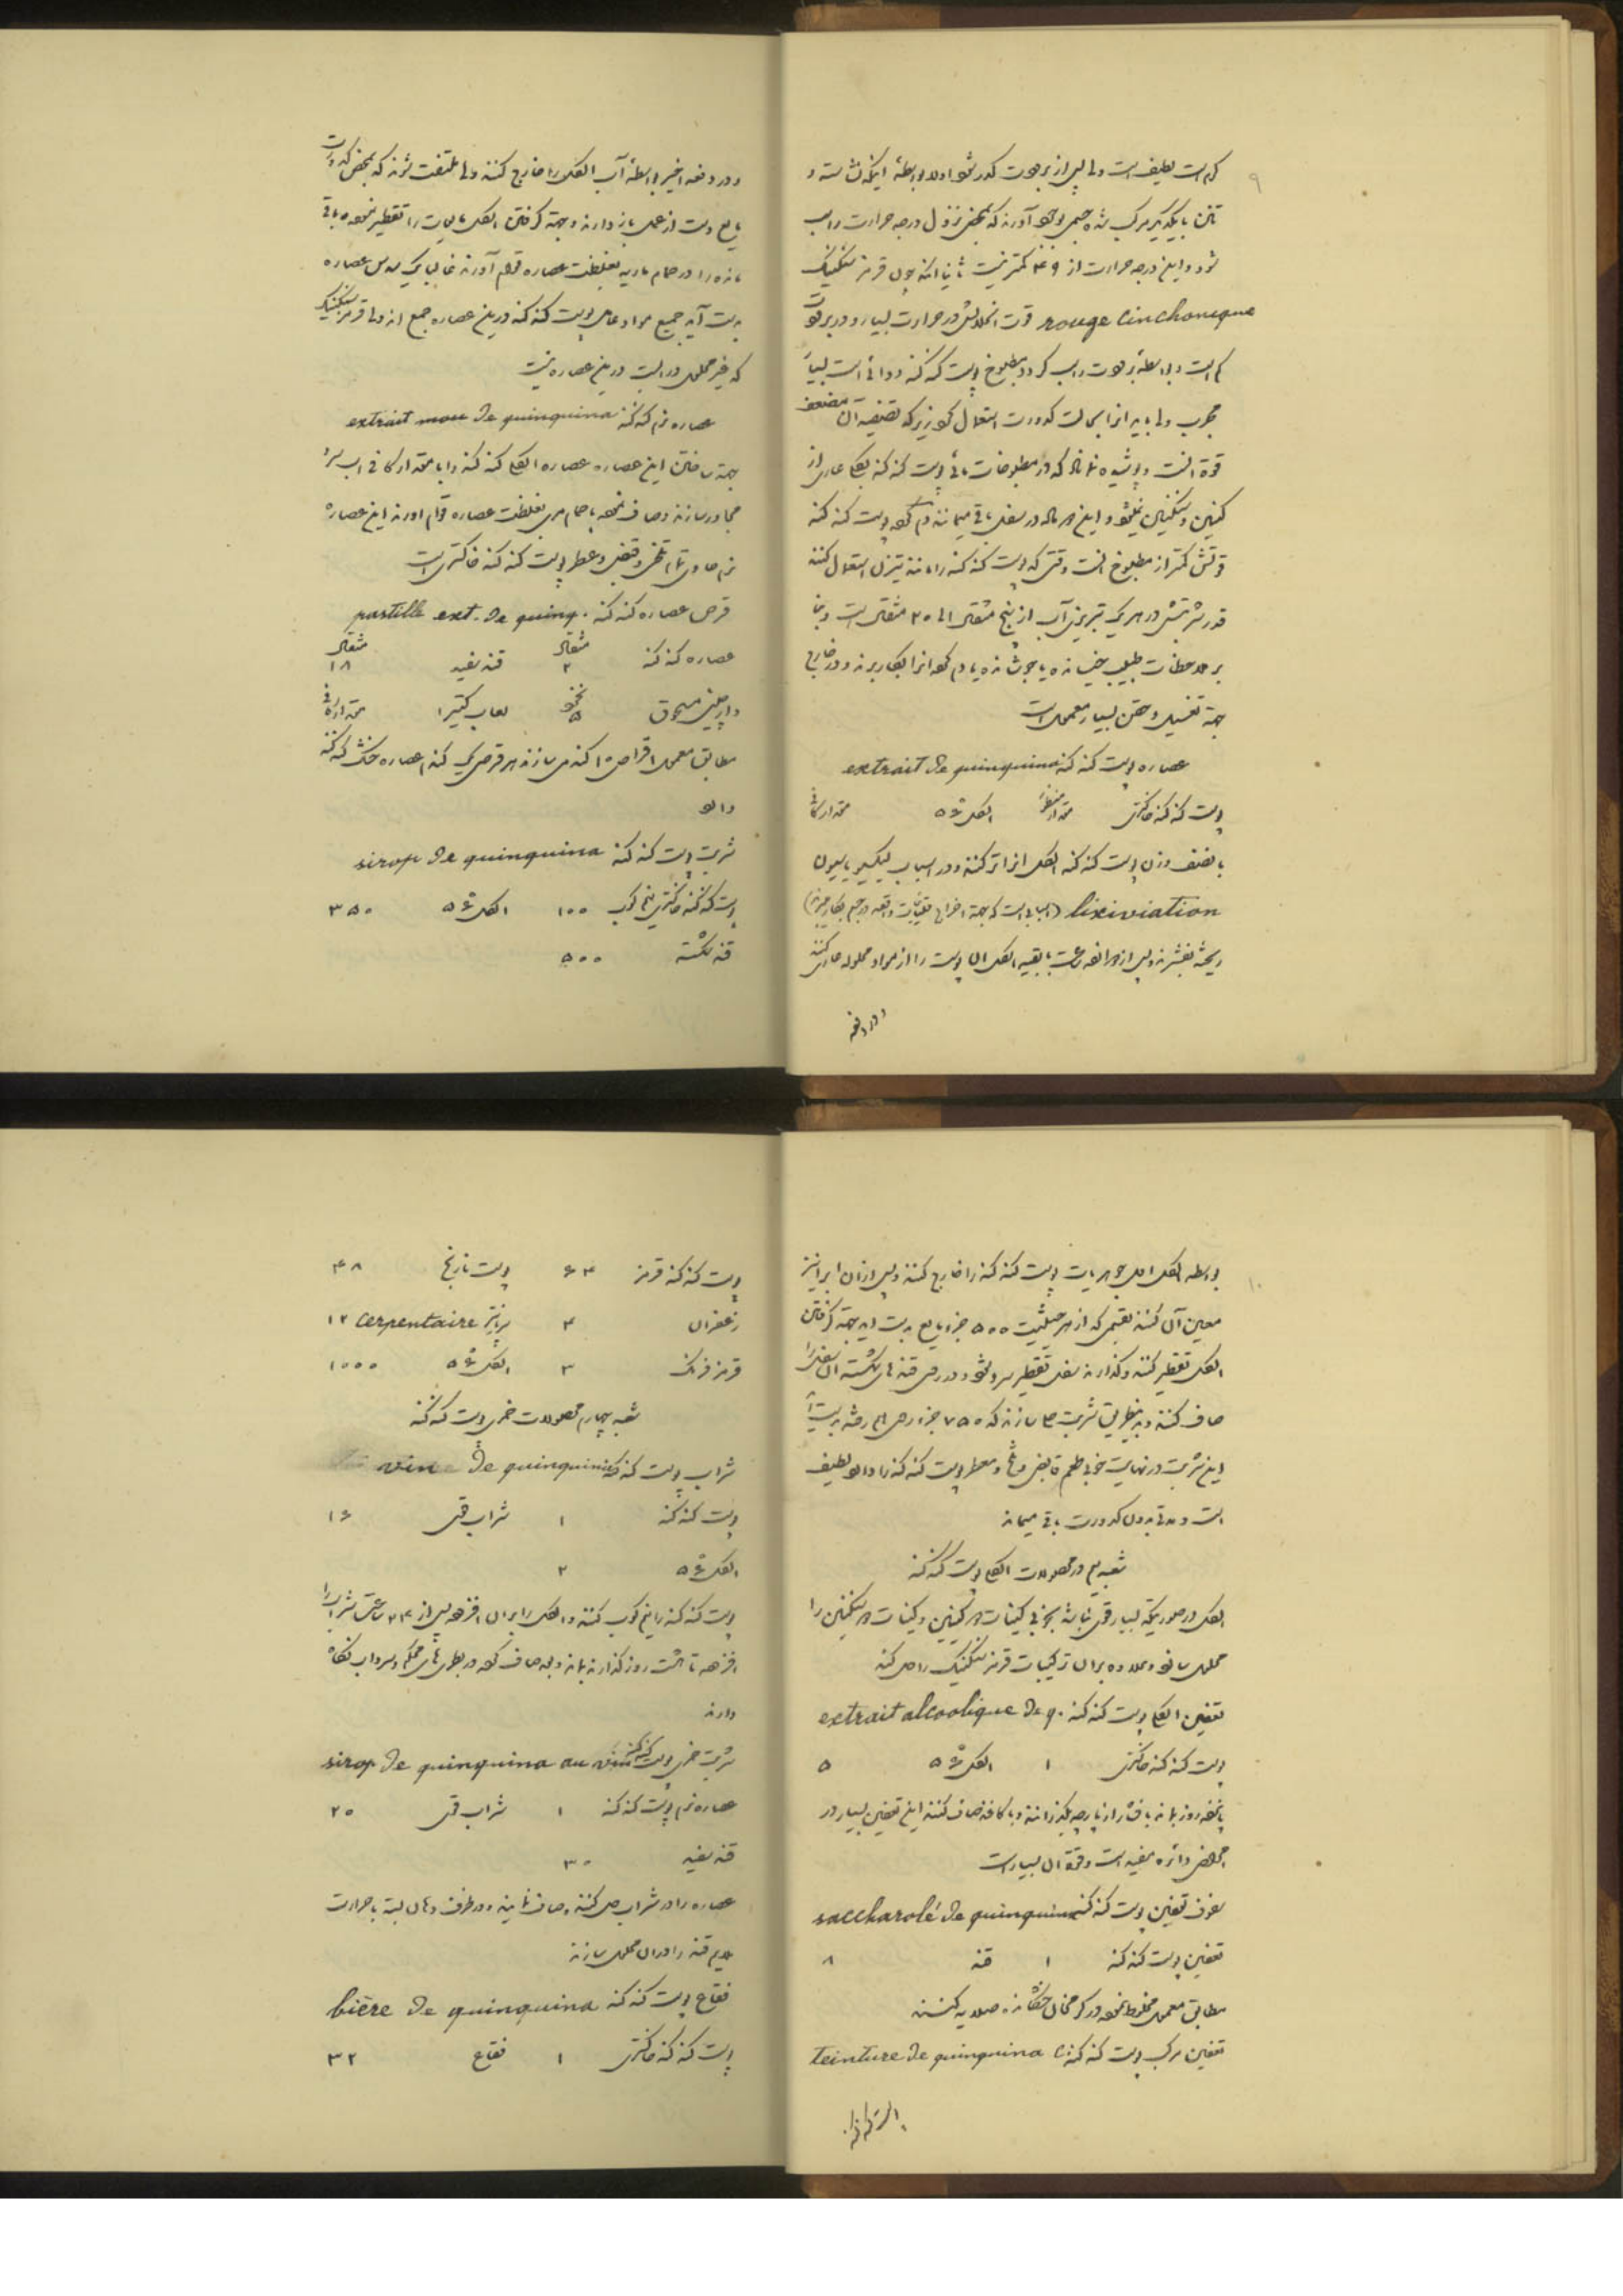 ۹
گرم است لطیف است ولی پس از برودت کدر شود اولا بواسطهٔ اینکه نشاسته و
تانن با یکدیگر مرکب شده جسمی بوجود آورند که بمحض نزول درجه حرارت راسب
شود و این درجه حرارت از ۴۹ کمتر نیست ثانیا اینکه چون قرمز سنکنیک
rouge cinchonique قوت انحلالش در حرارت بسیار و در برودت
کم است و بواسطهٔ برودت راسب گردد مطبوخ پوست کنه کنه دوائی است بسیار
مجرب ولی باید آنرا بحالت کدورت استعمال نمود زیرا که تصفیه آن مضعف
قوة است و پوشیده نماند که در مطبوخات مائی پوست کنه کنه بکلی عاری از
کنین و سنکنین نمیشود و این هر دو در سفل باقی میمانند دم کرده پوست کنه کنه
قوتش کمتر از مطبوخ است وقتی که پوست کنه کنه را مانند تیزان استعمال کنند
قدر شربتش در هر یک تبریزی آب از پنج مثقال الی ۲۰ مثقال است و بنا
بر ملاحظات طبیب خیسانده یا جوشانده یا دم کرده آنرا بکار برند و در خارج
جهة تغسیل و حقن بسیار معمول است
عصاره پوست کنه کنه extrait de quinquina
پوست کنه کنه خاکستری مقدار منظور الکل ۵۶ مقدار کافی
با نصف وزن پوست کنه کنه الکل آنرا تر کنند و در اسباب لیکسیویاسیون
lixiviation (اسبابی است که بجهة اخراج
ریخته بفشرند و پس از دوازده ساعت با بقیه الکل آن پوست را از مواد محلوله عاری کنند
و در دفعه
و در دفعه اخیر بواسطهٔ آب الکل را خارج کنند ولی ملتفت شوند که بمحض کدورت
مایع دست از عمل باز دارند و جهة گرفتن الکل مایعات را تقطیر نموده باقی
مانده را در حمام ماریه بغلظت عصاره قوام آورند غالبا یک سدس عصاره
بدست آید جمیع مواد عامل پوست کنه کنه در این عصاره جمع اند ولی قرمز سنکنیک
که غیر محلول در آبست در این عصاره نیست
عصاره نرم کنه کنه extrait mou de quinquina
بجهة ساختن این عصاره عصاره الکلی کنه کنه را با مقدار کافی آب سرد
مجاور سازند و صاف نموده با حمام مریم بغلظت عصاره قوام آورند این عصاره
نرم حاوی تمام تلخی و قبض و عطر پوست کنه کنه خاکستری است
قرص عصاره کنه کنه pastille ext. de quinq.
عصاره کنه کنه مثقال ۲ قند سفید مثقال ۱۸
دارچین مسحوق نخود ۵ لعاب کتیرا مقدار کافی
مطابق معمول اقراص ۱۰ گندمی سازند هر قرص یک گندم عصاره خشک کنه کنه
دارد
شربت پوست کنه کنه sirop de quinquina
پوست کنه کنه خاکستری نیم کوب ۱۰۰ الکل ۵۶ ۳۵۰
قند شکسته ۵۰۰
۱۰
بواسطه الکل اصل جوهریات پوست کنه کنه را خارج کنند و پس از آن آب را نیز
معین آن کنند بقسمی که از هر حیثیت ۵۰۰ جزء مایع بدست آید جهة گرفتن
الکل تقطیر کنند و گذارند سفل تقطیر سرد شود و در روی قند شکسته آن سفل را
صاف کنند و بدین طریق شربت سازند که ۷۵۰ جزء بدست آید
این شربت در نهایت خوبی طعم قابض و تلخ و معطر پوست کنه کنه را دارد لطیف
است و مدتی بدون کدورت باقی میماند
شعبه سیم در محصولات الکلی پوست کنه کنه
الکل در صورتیکه بسیار قوی نباشد بخوبی کینات کنین و کینات سنکنین را
محلول سازد و علاوه بر آن ترکیبات قرمز سنکنیک را حل کند
تعفین الکلی پوست کنه کنه extrait alcoolique de q.
پوست کنه کنه خاکستری ۱ الکل ۵۶ ۵
پانزده روز بماند با فشار از پارچه بگذرانند و با کاغذ صاف کنند این تعفین بسیار در
امراض دائره مفید است و قوة آن بسیار است
سفوف تعفین پوست کنه کنه saccharolé de quinquina
تعفین پوست کنه کنه ۱ قند ۸
مطابق معمول مخلوط نموده در گرمخانه خشکانده صلایه کنند
تعفین مرکب پوست کنه کنه teinture de quinquina c.
پوست کنه کنه
پوست کنه کنه قرمز ۶۴ پوست نارنج ۴۸
زعفران ۴ سرپانتر cerpentaire ۱۲
قرمز فرنگ ۳ الکل ۵۶ ۱۰۰۰
شعبه چهارم محصولات خمری پوست کنه کنه
شراب پوست کنه کنه vin de quinquina
پوست کنه کنه ۱ شراب قوی ۱۶
الکل ۵۶ ۲
پوست کنه کنه را نیم کوب کنند و الکل را بر آن افزوده پس از ۲۴ ساعت شراب را
افزوده تا هشت روز گذارند بماند و بعد صاف کرده در بطری های محکم و سرداب نگاه
دارند
شربت خمری پوست کنه کنه sirop de quinquina au vin
عصاره نرم پوست کنه کنه ۱ شراب قوی ۲۰
قند سفید ۳۰
عصاره را در شراب حل کنند و صاف نمایند و در ظرف دهان بسته با حرارت
ملایم قند را در آن محلول سازند
فقاع پوست کنه کنه bière de quinquina
پوست کنه کنه خاکستری ۱ فقاع ۳۲